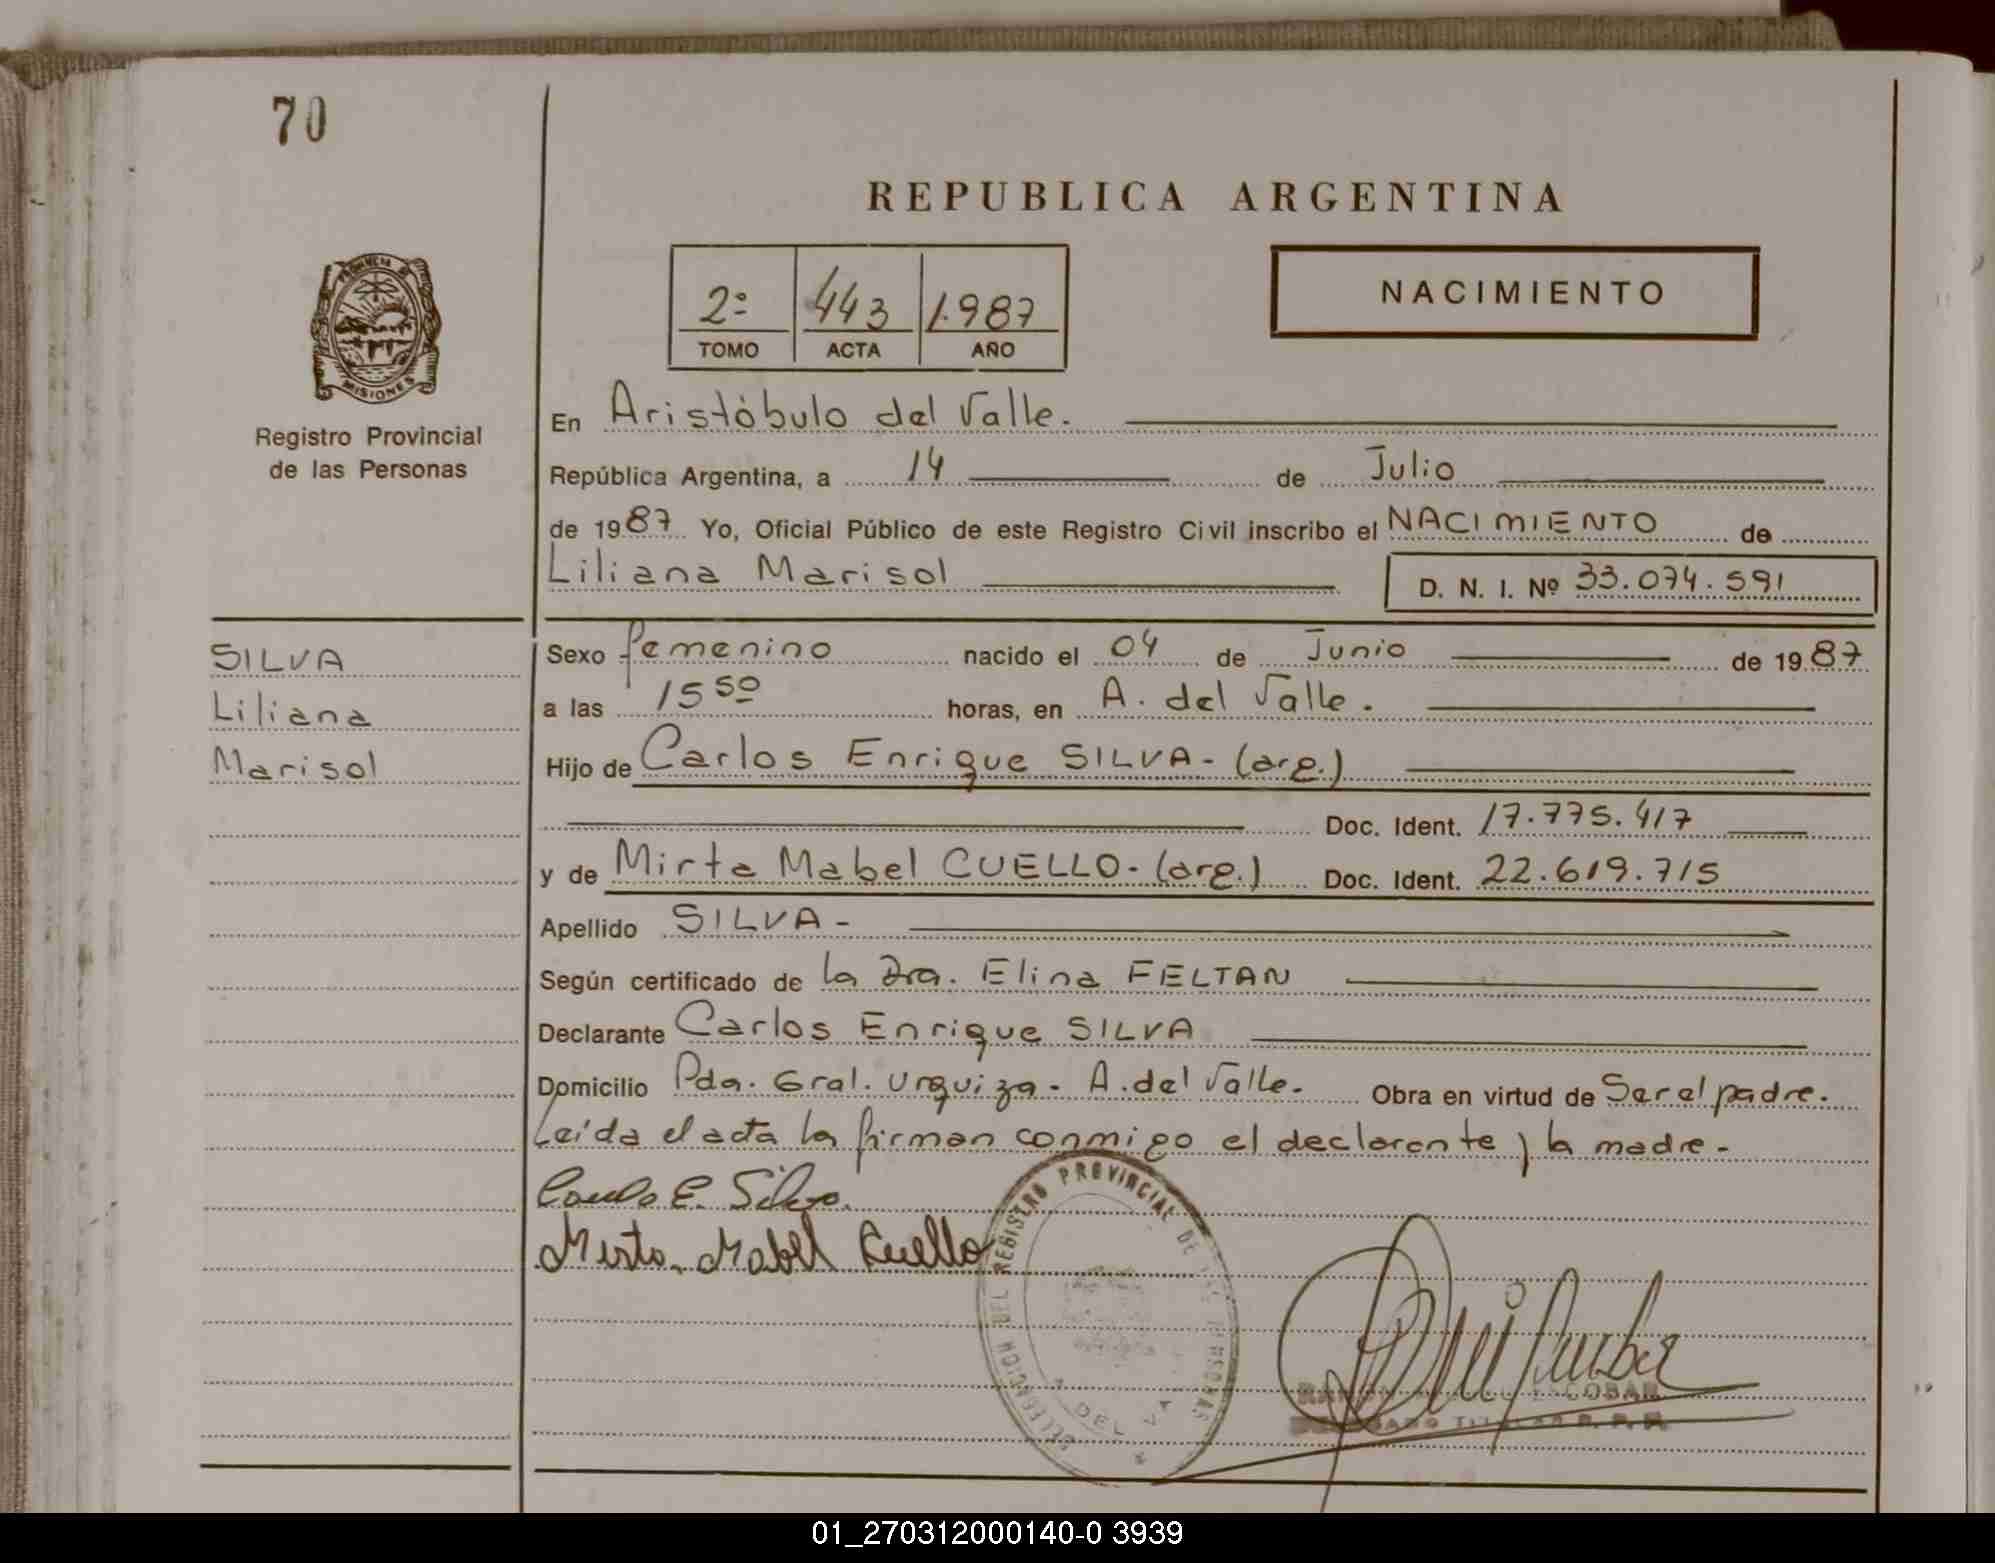 70
REPUBLICA ARGENTINA
PROVINCIA DE
MISIONES
Registro Provincial
de las Personas
2º 443 1.987
TOMO ACTA AÑO
NACIMIENTO
En Aristóbulo del Valle.
República Argentina, a 14 de Julio
de 1987 Yo, Oficial Público de este Registro Civil inscribo el NACIMIENTO de
Liliana Marisol D. N. I. Nº 33.074.591
SILVA
Liliana
Marisol
Sexo femenino nacido el 04 de Junio de 1987
a las 15 50 horas, en A. del Valle.
Hijo de Carlos Enrique SILVA - (arg.)
Doc. Ident. 17.775.417
y de Mirta Mabel CUELLO - (arg.) Doc. Ident. 22.619.715
Apellido SILVA -
Según certificado de la Dra. Elina FELTAN
Declarante Carlos Enrique SILVA
Domicilio Pda. Gral. Urquiza - A. del Valle. Obra en virtud de Ser el padre.
Leída el acta la firman conmigo el declarante y la madre -
Carlos E. Silva.
Mirta Mabel Cuello
DELEGACION DEL REGISTRO PROVINCIAL DE LAS PERSONAS
A. DEL VA
ESCOBAR
TITULAR R. P. P.
01_270312000140-0 3939